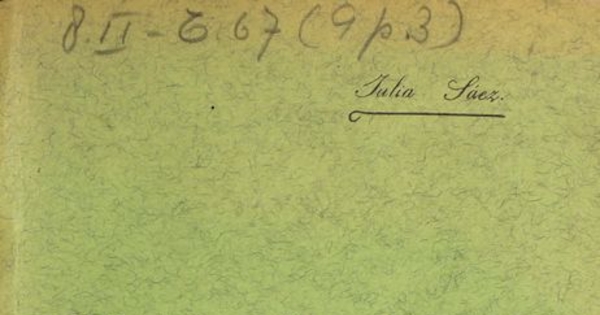 8.II-E.67(9p.3)
Julia Sáez.